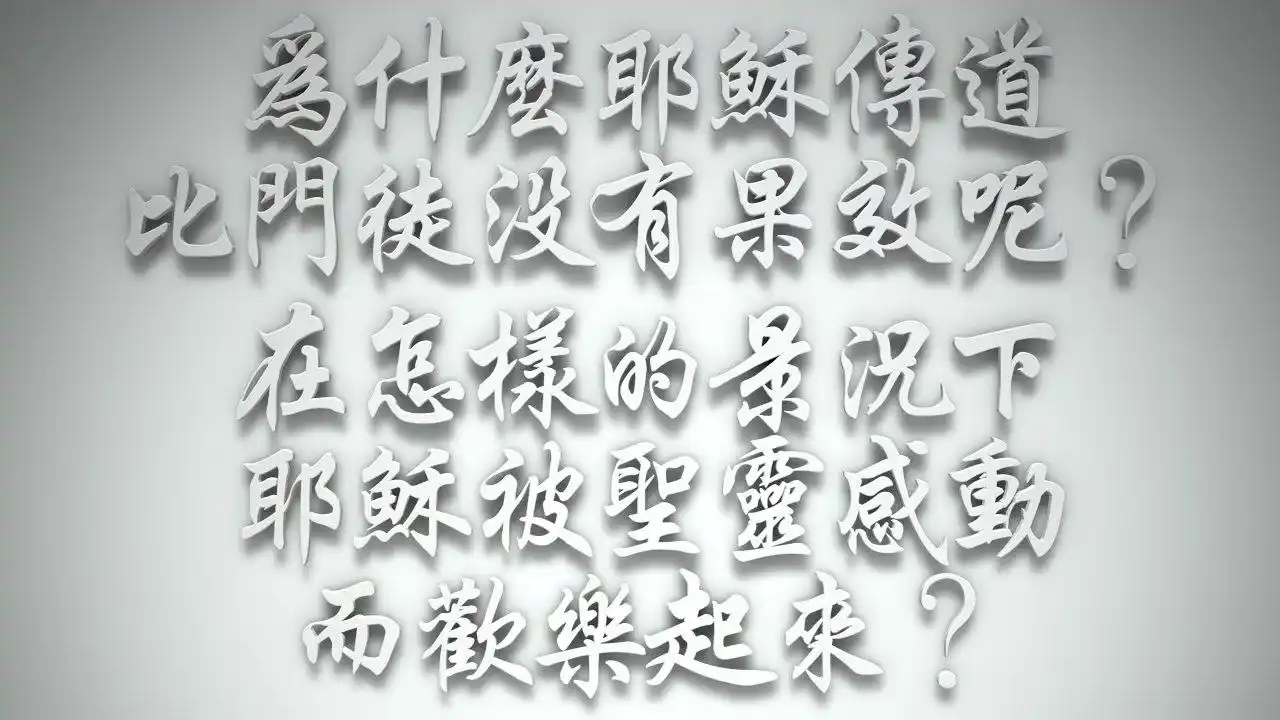 爲什麽耶穌傳道
比門徒没有果效呢？
在怎樣的景況下
耶穌被聖靈感動
而歡樂起來？